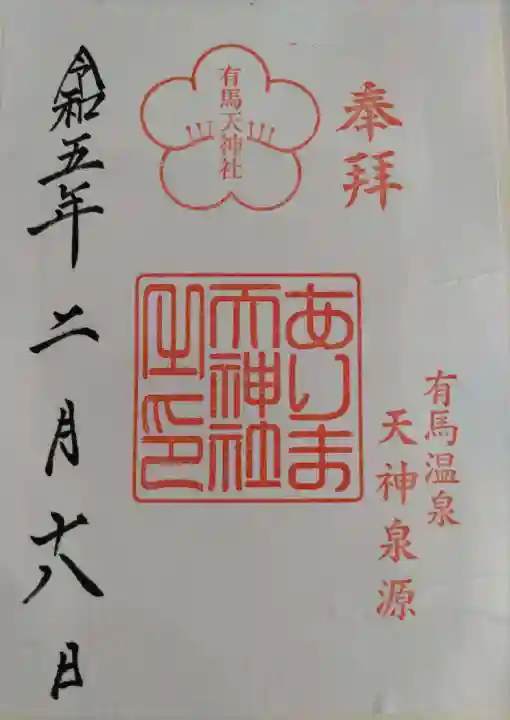 奉拝
有馬温泉
天神泉源
有馬天神社
ありま
天神社
之印
令和五年二月十八日